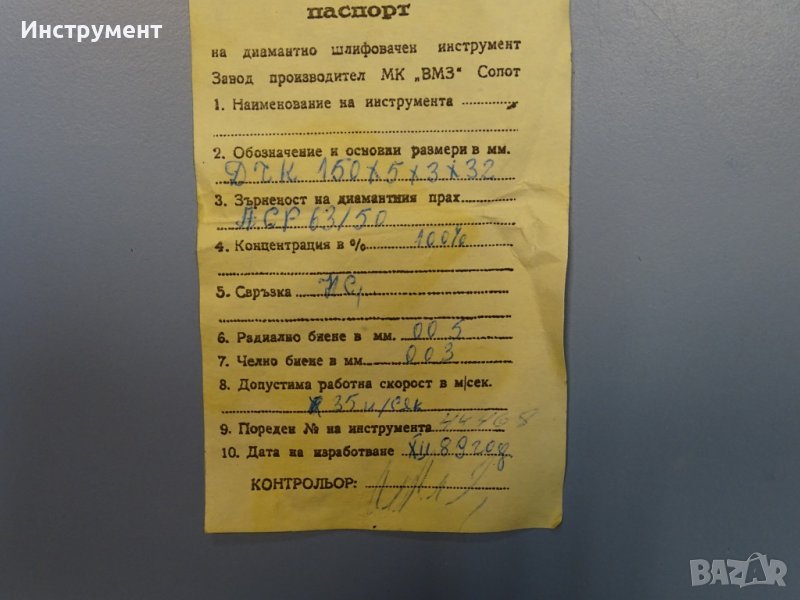 Инструмент
паспорт
на диамантно шлифовачен инструмент
Завод производител МК „ВМЗ“ Сопот
1. Наименование на инструмента
2. Обозначение и основни размери в мм.
ДЧК 150х5х3х32
3. Зърненост на диамантния прах
АСР 63/50
4. Концентрация в % 100%
5. Свръзка
6. Радиално биене в мм. 005
7. Челно биене в мм 003
8. Допустима работна скорост в м/сек.
35 м/сек
9. Пореден № на инструмента 44468
10. Дата на изработване XII 89 год
КОНТРОЛЬОР:
BAZAR